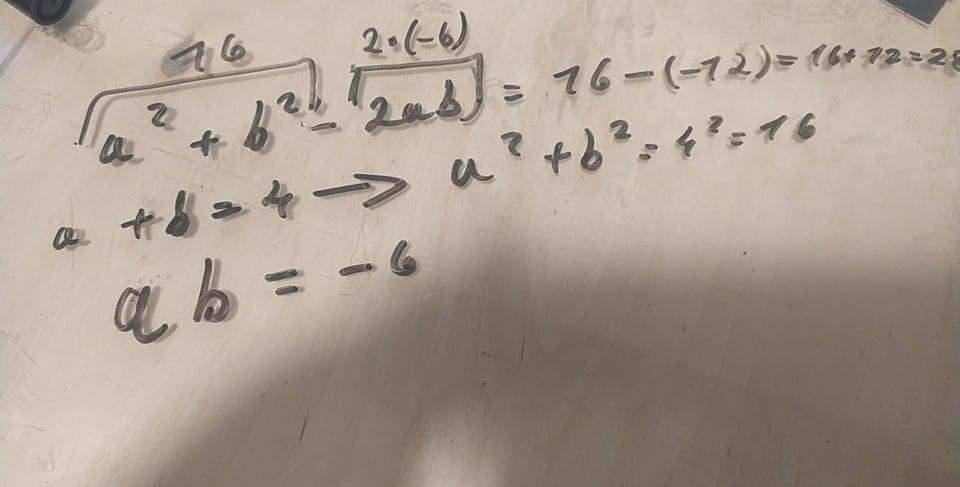 16 2·(-6)
a² + b² - 2ab = 16 - (-12) = 16 + 12 = 28
a + b = 4 → a² + b² = 4² = 16
ab = -6